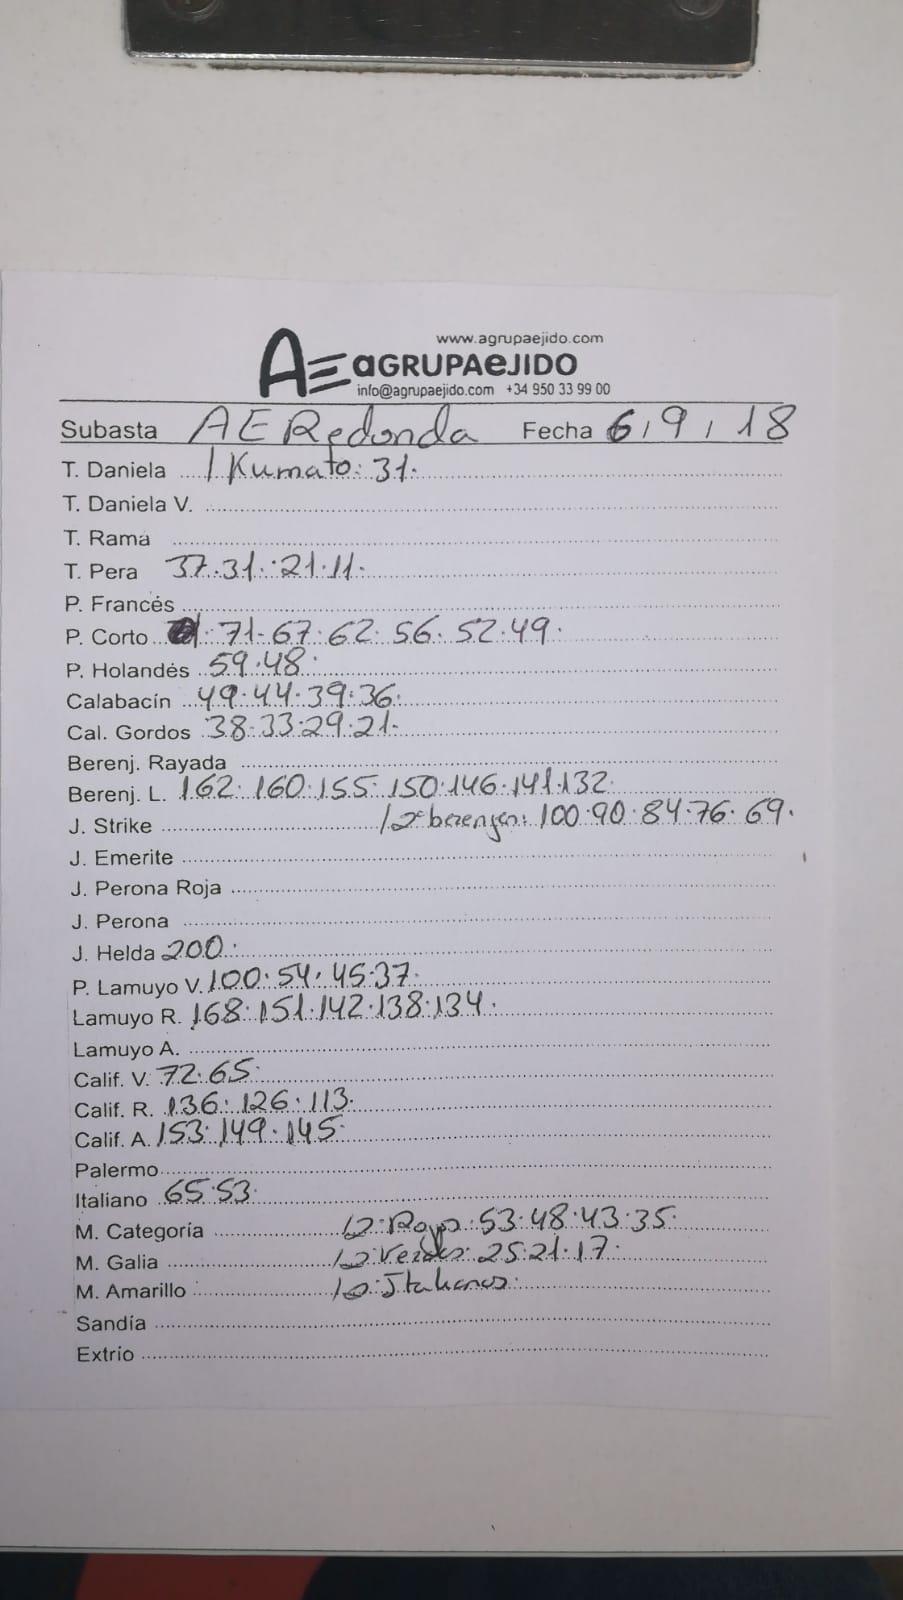 www.agrupaejido.com
AE aGRUPAeJIDO
info@agrupaejido.com +34 950 33 99 00
Subasta AE Redonda Fecha 6, 9, 18
T. Daniela / Kumato: 31.
T. Daniela V.
T. Rama
T. Pera 37.31.21.11.
P. Francés
P. Corto 71.67.62.56.52.49.
P. Holandés 59.48.
Calabacín 49.44.39.36.
Cal. Gordos 38.33.29.21.
Berenj. Rayada
Berenj. L. 162.160.155.150.146.141.132.
J. Strike 100.90.84.76.69.
J. Emerite
J. Perona Roja
J. Perona
J. Helda 200.
P. Lamuyo V. 100.54.45.37.
Lamuyo R. 168.151.142.138.134.
Lamuyo A.
Calif. V. 72.65.
Calif. R. 136.126.113.
Calif. A. 153.149.145.
Palermo
Italiano 65.53.
M. Categoría 53.48.43.35.
M. Galia 25.21.17.
M. Amarillo
Sandía
Extrío